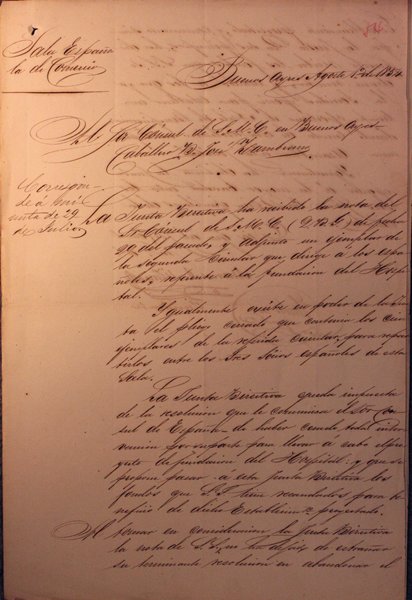 Sala Españo
la de Comercio
Buenos Ayres Agosto 1º de 185
Al Sor Consul de S. M. C. en Buenos Ayres
Caballero Dn José Zambrano
Correspon
de á mi
nota de 29
de Julio
La Junta Directiva ha recibido la nota del
Sr Consul de S. M. C. (D. B. G.) de fecha
del pasado, y adjunto un ejemplar de
la segunda Circular que dirige á los espa
ñoles, referente á la fundacion del Hospi
tal.
Ygualmente existe en poder de la Jun
ta el pliego cerrado que contenia los
ejemplares de la referida Circular, para repar
tirlos entre los Sres Socios españoles de esta
Sala.
La Junta Directiva queda impuesta
de la resolucion que le comunica el Sor Con
sul de España de haber cesado toda inter
vencion por su parte para llevar á cabo el pro
yecto de fundacion del Hospital: y que se
propone pasar a esta Junta Directiva los
fondos que S. S. tiene recaudados para be
neficio de dicho Establecimto proyectado.
Al tomar en consideracion la Junta Directiva
la nota de S. S. no ha dejado de estrañar
su terminante resolucion en abandonar el